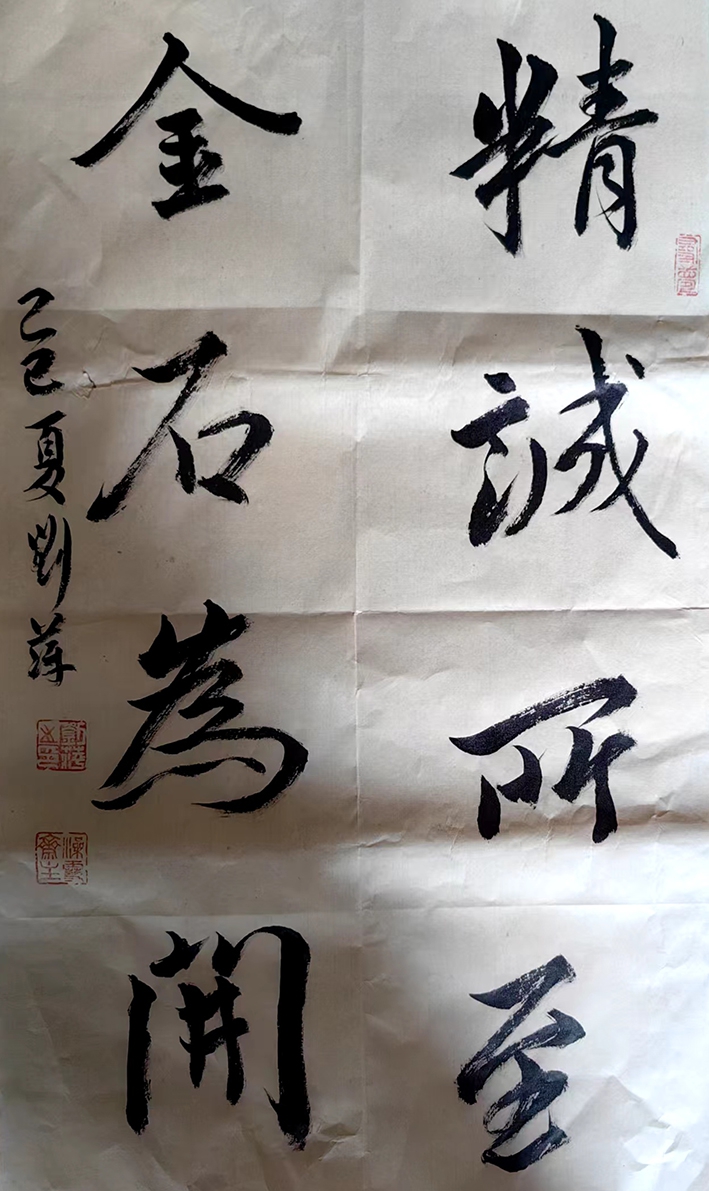 精誠所至
金石為開
己巳夏劉萍